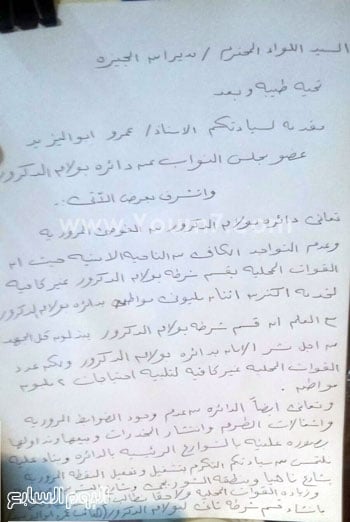 السيد اللواء المحترم / مدير امن الجيزه
تحية طيبه وبعد
مقدمه لسيادتكم الاستاذ / عمرو ابو اليزيد
عضو مجلس النواب عن دائره بولاق الدكرور
واتشرف بعرض الآتى :
تعانى دائرة بولاق الدكرور من الفوضى المروريه
وعدم التواجد الكافى من الناحية الامنيه حيث ان
القوات المحليه بقسم شرطه بولاق الدكرور غير كافيه
لخدمه اكثر من اثنان مليونى مواطن بدائره بولاق الدكرور
مع العلم ان قسم شرطه بولاق الدكرور يبذلون كل الجهد
من اجل نشر الامان بدائره بولاق الدكرور ولكن عدد
القوات المحليه غير كافيه لتلبية احتياجات ٢ مليون
مواطن .
وتعانى ايضاً الدائره من عدم وجود الضوابط المروريه
واشغالات الطريق وانتشار المخدرات وبيعها وتداولها
بصوره علنية بالشوارع الرئيسيه بالدائره وبناء عليه
نلتمس من سيادتكم التكرم بتشغيل وتفعيل النقطه المروريه
بشارع ناهيا ومنطقة
وزياده القوات المحليه
بانشاء قسم شرطه ثانى لبولاق الدكرور
www.Youm7.com
اليوم السابع